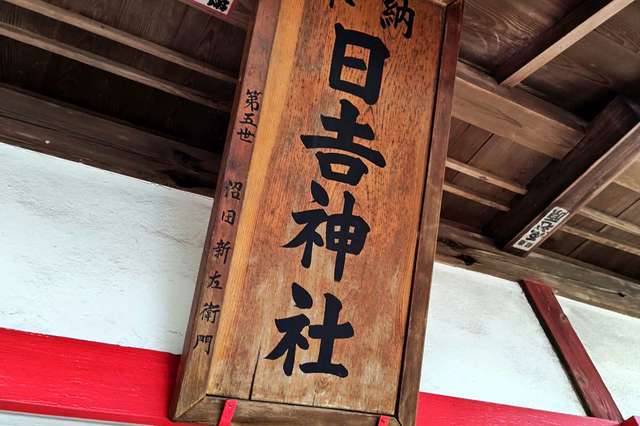 納
日吉神社
第五世 沼田新左衛門